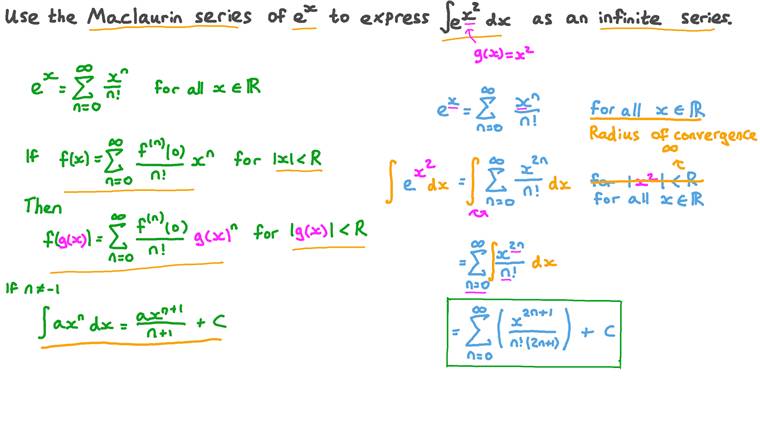 Use the Maclaurin series of e^x to express ∫e^{x^2} dx as an infinite series.
g(x)=x^2
e^x = ∑_{n=0}^{∞} x^n/n! for all x ∈ ℝ
If f(x) = ∑_{n=0}^{∞} f^{(n)}(0)/n! x^n for |x| < R
Then
f(g(x)) = ∑_{n=0}^{∞} f^{(n)}(0)/n! g(x)^n for |g(x)| < R
If n ≠ -1
∫ax^n dx = ax^{n+1}/n+1 + C
e^x = ∑_{n=0}^{∞} x^n/n! for all x ∈ ℝ
Radius of convergence
∞
∫ e^{x^2} dx = ∫ ∑_{n=0}^{∞} x^{2n}/n! dx for |x^2| < R
for all x ∈ ℝ
= ∑_{n=0}^{∞} ∫ x^{2n}/n! dx
= ∑_{n=0}^{∞} (x^{2n+1}/n!(2n+1)) + C